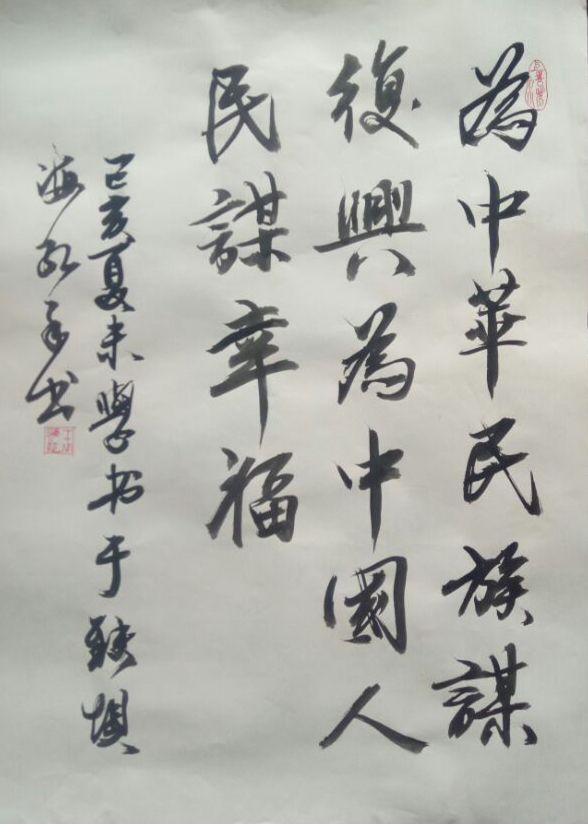 為中華民族謀
復興為中國人
民謀幸福
己亥夏末學书于
海
书